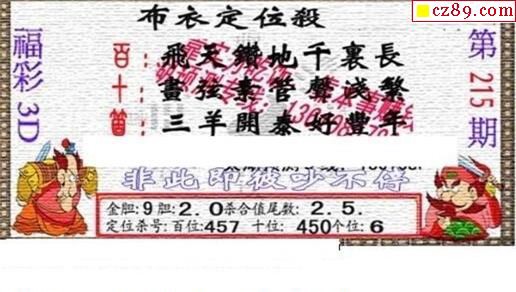 cz89.com
布衣定位殺
福彩3D
第215期
百:飛天鑽地千裏長
十:畫弦素管聲淺繁
個:三羊開泰好豐年
非此即彼少不得
金胆:9胆:2.0杀合值尾数:2.5.
定位杀号:百位:457 十位:450个位:6